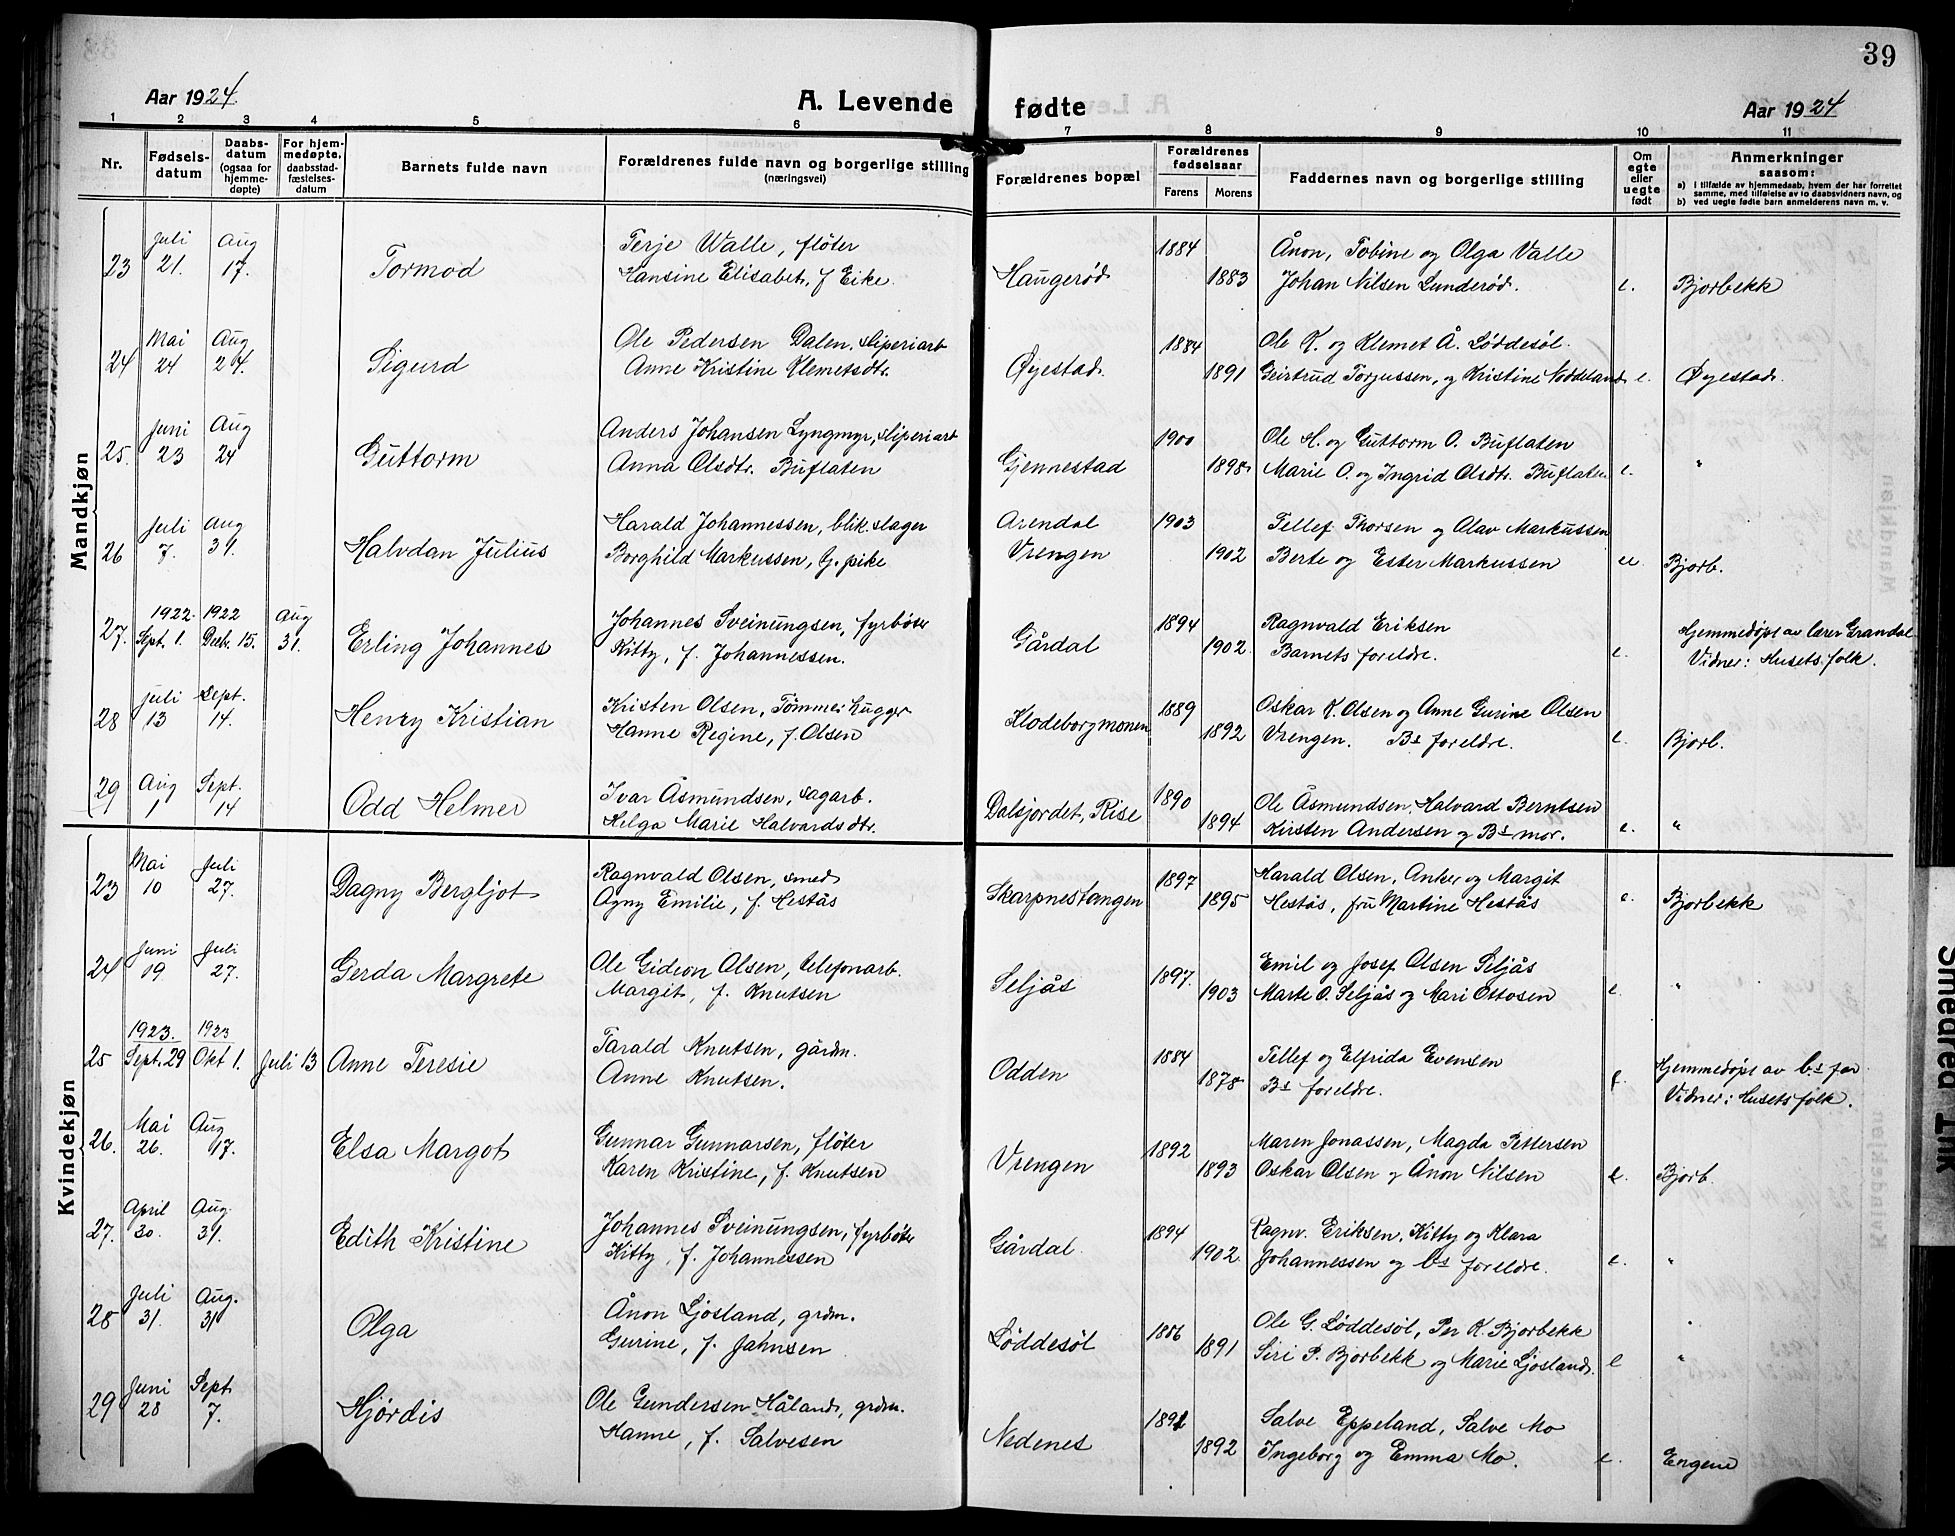 39
Aar 1924.
A. Levende fødte
Aar 1924
1 2 3 4 5 6 7 8 9 10 11
Nr.
Fødsels-
datum
Daabs-
datum
(ogsaa for
hjemme-
døpte)
For hjem-
medøpte,
daabsstad-
fæstelses-
datum
Barnets fulde navn
Forældrenes fulde navn og borgerlige stilling
(næringsvei)
Forældrenes bopæl
Forældrenes
fødselsaar
Farens Morens
Faddernes navn og borgerlige stilling
Om
egte
eller
uegte
født
Anmerkninger
saasom:
a) i tilfælde av hjemmedaab, hvem der har forrettet
samme, med tilføielse av to daabsvidners navn, og
b) ved uegte fødte barn anmelderens navn m. v.
Mandkjøn
Juli Aug Terje Walle, fløter 1884 Ånon, Tobine og Olga Valle
23 21. 17. Tormod Hansine Elisabet, f Eike. Haugerød 1883 Johan Nilsen Lunderød. e. Bjorbekk
Mai Aug Ole Pedersen Dalen, sliperiarb 1884 Ole K. og Klemet Å. Løddesøl.
24 24 24. Sigurd Anne Kristine Klemetsdtr. Øyestad. 1891 Geirtrud Torjussen, og Kristine Nøddeland e. Øyestad.
Juni Aug Anders Johansen Lyngmyr, sliperiarb 1900 Ole H. og Guttorm O. Buflaten
25. 23 24 Guttorm Anna Olsdtr. Buflaten Gjennestad 1898. Marie O. og Ingrid Olsdtr. Buflaten e. "
Juli Aug Harald Johannessen, blik.slager Arendal 1903 Tellef Thorsen og Olav Markussen
26 7. 31. Halvdan Julius Borghild Markussen, G. pike Vrengen 1902 Berte og Ester Markussen ue. Bjorb.
1922. 1922 Aug Johannes Sveinungsen, fyrbøter 1894 Ragnvald Eriksen Hjemmedøpt av lærer Grandal
27. Sept. 1. Decbr. 15. 31. Erling Johannes Kitty, f. Johannessen. Gårdal 1902. Barnets foreldre. e. Vidner: Husets folk.
Juli Sept. Kristen Olsen, Tømmerhugger 1889 Oskar K. Olsen og Anne Gurine Olsen
28 13 14. Henry Kristian Hanne Regine, f. Olsen Klodeborgmonen 1892 Vrengen. Bs foreldre. e. Bjorb.
Aug Sept. Ivar Åsmundsen, sagarb. 1890 Ole Åsmundsen, Halvard Berntsen
29 1 14 Odd Helmer Helga Marie Halvardsdtr. Dalsjordet, Rise 1894 Kirsten Andersen og Bs mor. e. "
Kvindekjøn
Mai Juli Ragnvald Olsen, smed 1897 Harald Olsen, Anker og Margit
23 10 27. Dagny Bergljot Agny Emilie, f. Hestås Skarpnestangen 1895 Hestås, fru Martine Hestås e. Bjorbekk
Juni Juli Ole Gideon Olsen, telefonarb. 1897. Emil og Josef Olsen Seljås
24 19 27. Gerda Margrete Margit, f. Knutsen Seljås 1903 Marte O. Seljås og Mari Ottosen e. "
1923. 1923 Tarald Knutsen, gårdm. 1884 Tellef og Elfrida Evensen Hjemmedøpt av bs far
25 Sept. 29 Okt 1. Juli 13 Anne Teresie Anne Knutsen. Odden 1878. Bs foreldre. e. Vidner: Husets folk.
Mai Aug Gunnar Gunnarsen, fløter 1892 Maren Jonassen, Magda Pettersen
26. 26. 17. Elsa Margot Karen Kristine, f. Knutsen Vrengen 1893 Oskar Olsen og Ånon Nilsen e. Bjorb.
April Aug. Johannes Sveinungsen, fyrbøter 1894 Ragnv. Eriksen, Kitty og Klara
27. 30. 31. Edith Kristine Kitty, f. Johannessen Gårdal. 1902. Johannessen og bs foreldre. e. "
Juli Aug. Ånon Ljosland, grdm. 1886 Ole G. Løddesøl, Per K. Bjorbekk "
28 31. 31 Olga Gurine, f. Jahnsen Løddesøl 1891 Siri P. Bjorbekk og Marie Ljosland. e "
Juni Sept Ole Gundersen Håland, grdm. 1891 Salve Eppeland, Salve Mo
29 28 7. Hjørdis Hanne, f. Salvesen Nedenes 1892 Ingeborg og Emma Mo. e. Engene
Smeared Ink